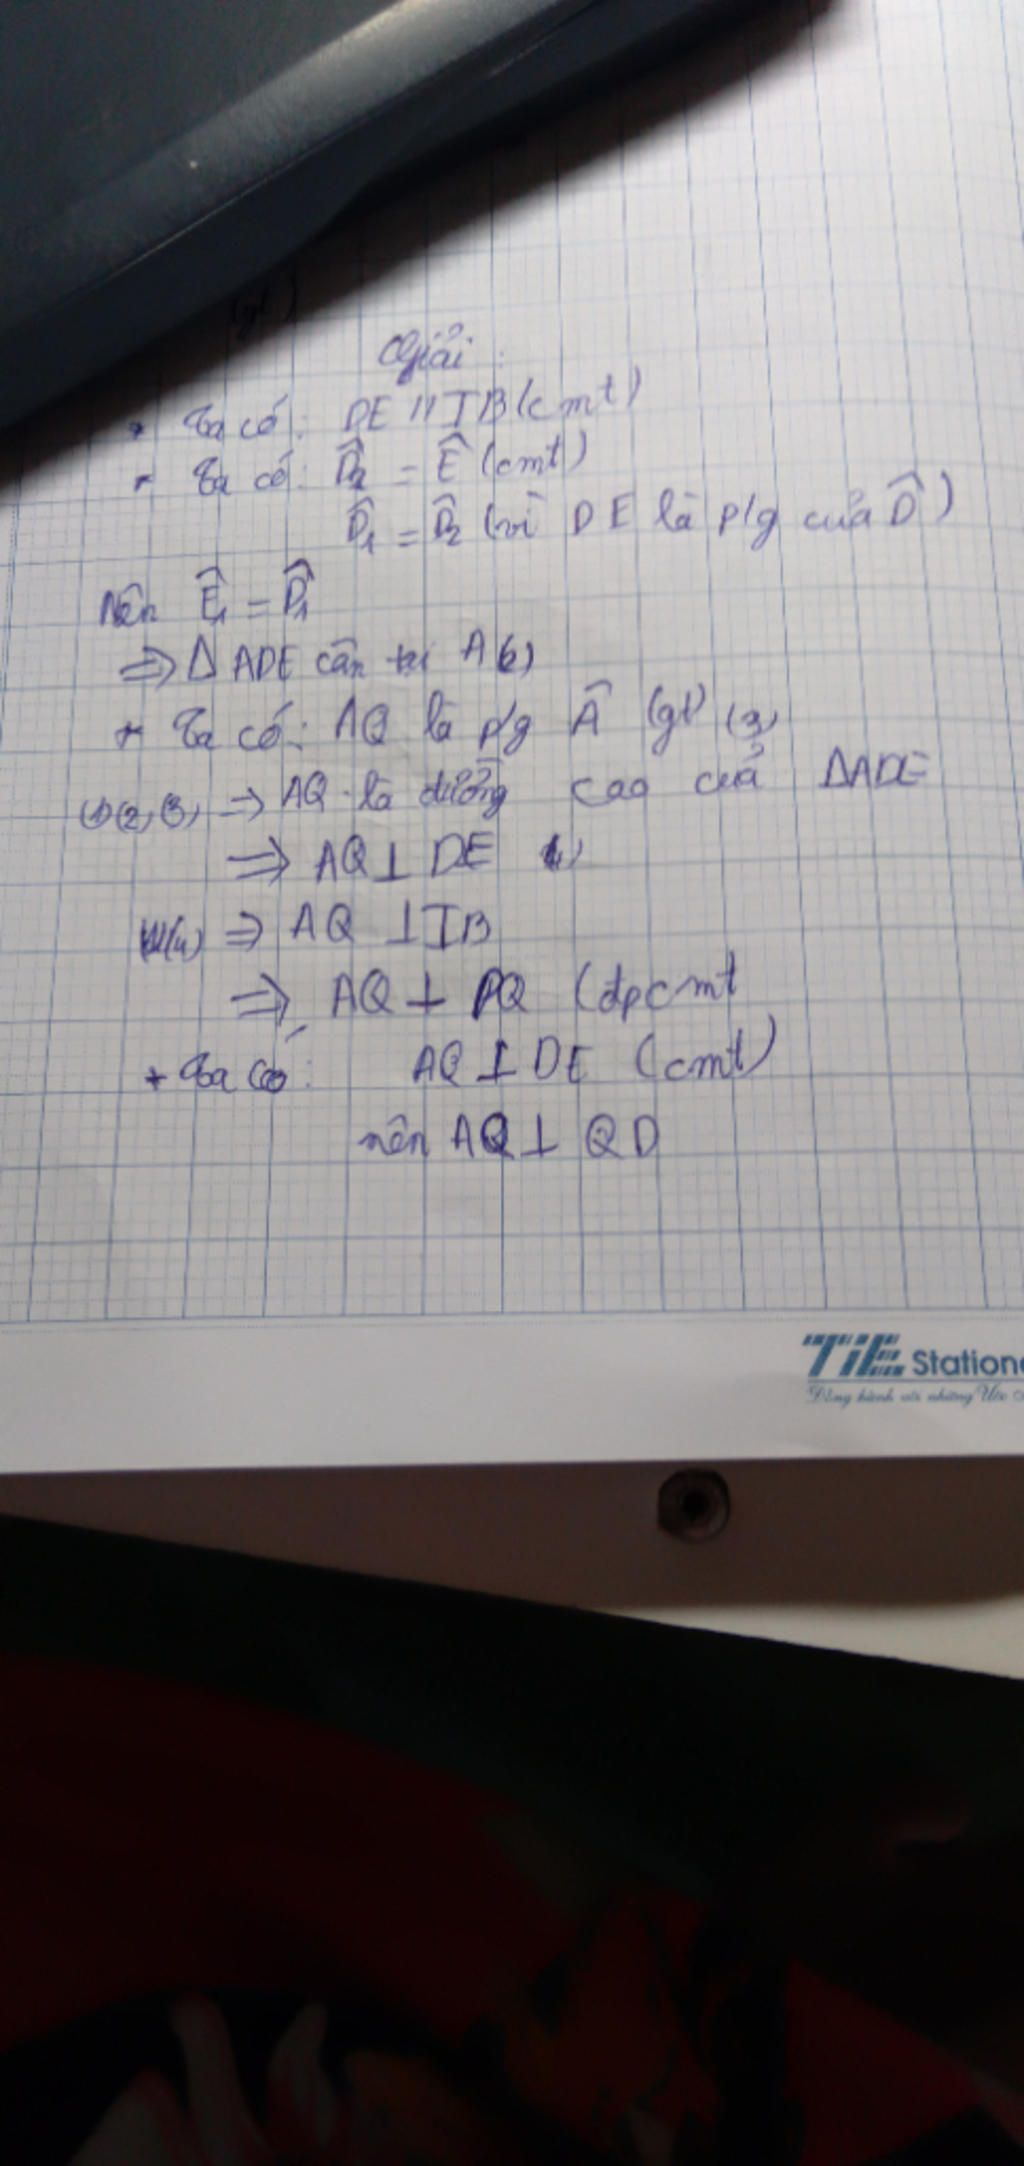 (gt)
Giải:
+ Ta có: DE // IB (cmt)
- Ta có: D̂2 = Ê (cmt)
D̂1 = D̂2 (vì DE là p/g của D̂)
Nên Ê1 = D̂1
⇒ Δ ADE cân tại A (2)
+ Ta có: AQ là p/g  (gt) (3)
(1)(2)(3) ⇒ AQ là đường cao của ΔADE
⇒ AQ ⊥ DE (4)
(4) ⇒ AQ ⊥ IB
⇒ AQ ⊥ PQ (đpcmt
+ Ta có: AQ ⊥ DE (cmt)
nên AQ ⊥ QD
TiE Statione
Đồng hành với những Ước